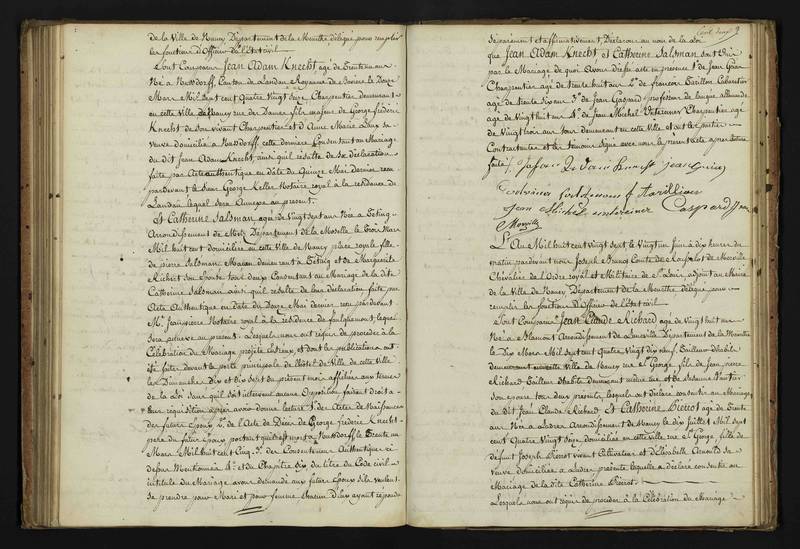 de la Ville de Nancy Département de la Meurthe délégué pour remplir
les fonctions d'Officier de l'état civil
Sont Comparus Jean Adam Knecht agé de trente un ans
Né à Nussdorff, Canton de Landau Royaume de Baviere le Douze
Mars Mil sept cent Quatre Vingt Seize Charpentier demeurant
en cette Ville de Nancy rue des Dames fils majeur de George fréderic
Knecht de son vivant Charpentier et d'Anne Marie sa
veuve domiciliée à Nussdorff, cette derniere Consentant au Mariage
du dit Jean Adam Knecht ainsi qu'il résulte de sa déclaration
faite par Acte authentique en date du Quinze Mai dernier reçu
pardevant le Sieur George Keller Notaire royal à la résidence de
Landau lequel sera Annexé au présent.
Et Catherine Salsman agée de Vingt sept ans Née à
Arrondissement de Metz Département de la Moselle le trois Mars
Mil huit cent domiciliée en cette Ville de Nancy place royale fille
de pierre Salsman Maçon demeurant à et de Marguerite
Richert son épouse tous deux Consentant au Mariage de la dite
Catherine Salsman ainsi qu'il résulte de leur déclaration faite par
Acte Authentique en date du Douze Mai dernier reçu pardevant
Me Jean pierre Notaire royal à la résidence de faulquemont, lequel
sera annexé au présent. Lesquels nous ont requis de procéder à la
Célébration du Mariage projeté entr'eux, et dont les publications ont
été faites devant la porte principale de l'hôtel de Ville de cette Ville
les Dimanches Dix et Dix sept du présent mois affichées aux termes
de la Loi sans qu'il soit intervenu aucune Opposition faisant droit à
leur réquisition après avoir donné lecture 1° des Actes de Naissances
des futurs époux 2° de l'Acte de Décès de George fréderic Knecht
pere du futur époux portant qu'il est mort à Nussdorff le trente un
Mars Mil huit cent Cinq 3° des Consentemens Authentiques ci
dessus Mentionnés 4° et du Chapitre Six du titre du Code civil
intitulé du Mariage avons demandé aux futurs époux s'ils veulent
se prendre pour Mari et pour femme chacun d'eux ayant répondu
séparément et affirmativement, Déclarons au nom de la Loi
que Jean Adam Knecht et Catherine Salsman sont Unis
par le Mariage de quoi Avons dressé acte en présence 1° de Jean
Charpentier agé de trente huit ans 2° de françois Tarillon Cabaretier
agé de trente Six ans 3° de Jean Gaspard professeur de langue allemande
agé de Vingt huit ans 4° de Jean Michel Charpentier agé
de Vingt trois ans tous demeurant en cette Ville et ont les parties
Contractantes et les temoins signé avec nous le présent acte après lecture
faite
Jean Michel
Gaspard Jean
Morville
L'An Mil huit cent Vingt sept le Vingt un Juin à dix heures du
matin pardevant nous Joseph Comte de de Morville
Chevalier de l'Ordre royal et Militaire de St Louis, adjoint au Maire
de la Ville de Nancy Département de la Meurthe délégué pour
remplir les fonctions d'Officier de l'état civil
Sont Comparus Jean Claude Richard agé de Vingt huit ans
Né à Blamont Arrondissement de Lunéville Département de la Meurthe
le Dix Mars Mil sept cent Quatre Vingt Dix neuf, tailleur d'habits
demeurant en cette Ville de Nancy rue St George, fils de Jean pierre
Richard tailleur d'habits demeurant même rue et de Susanne
son épouse tous deux présents lesquels ont déclaré consentir au Mariage
du dit Jean Claude Richard Et Catherine Pierrot agée de trente
ans Née à Arrondissement de Nancy le dix Juillet Mil sept
cent Quatre Vingt Seize domiciliée en cette Ville rue St George, fille de
défunt Joseph Pierrot vivant Cultivateur et d'Elisabeth Arnould sa
veuve domiciliée à présente laquelle a déclaré consentir au
Mariage de la dite Catherine Pierrot.
Lesquels nous ont requis de procéder à la Célébration du Mariage